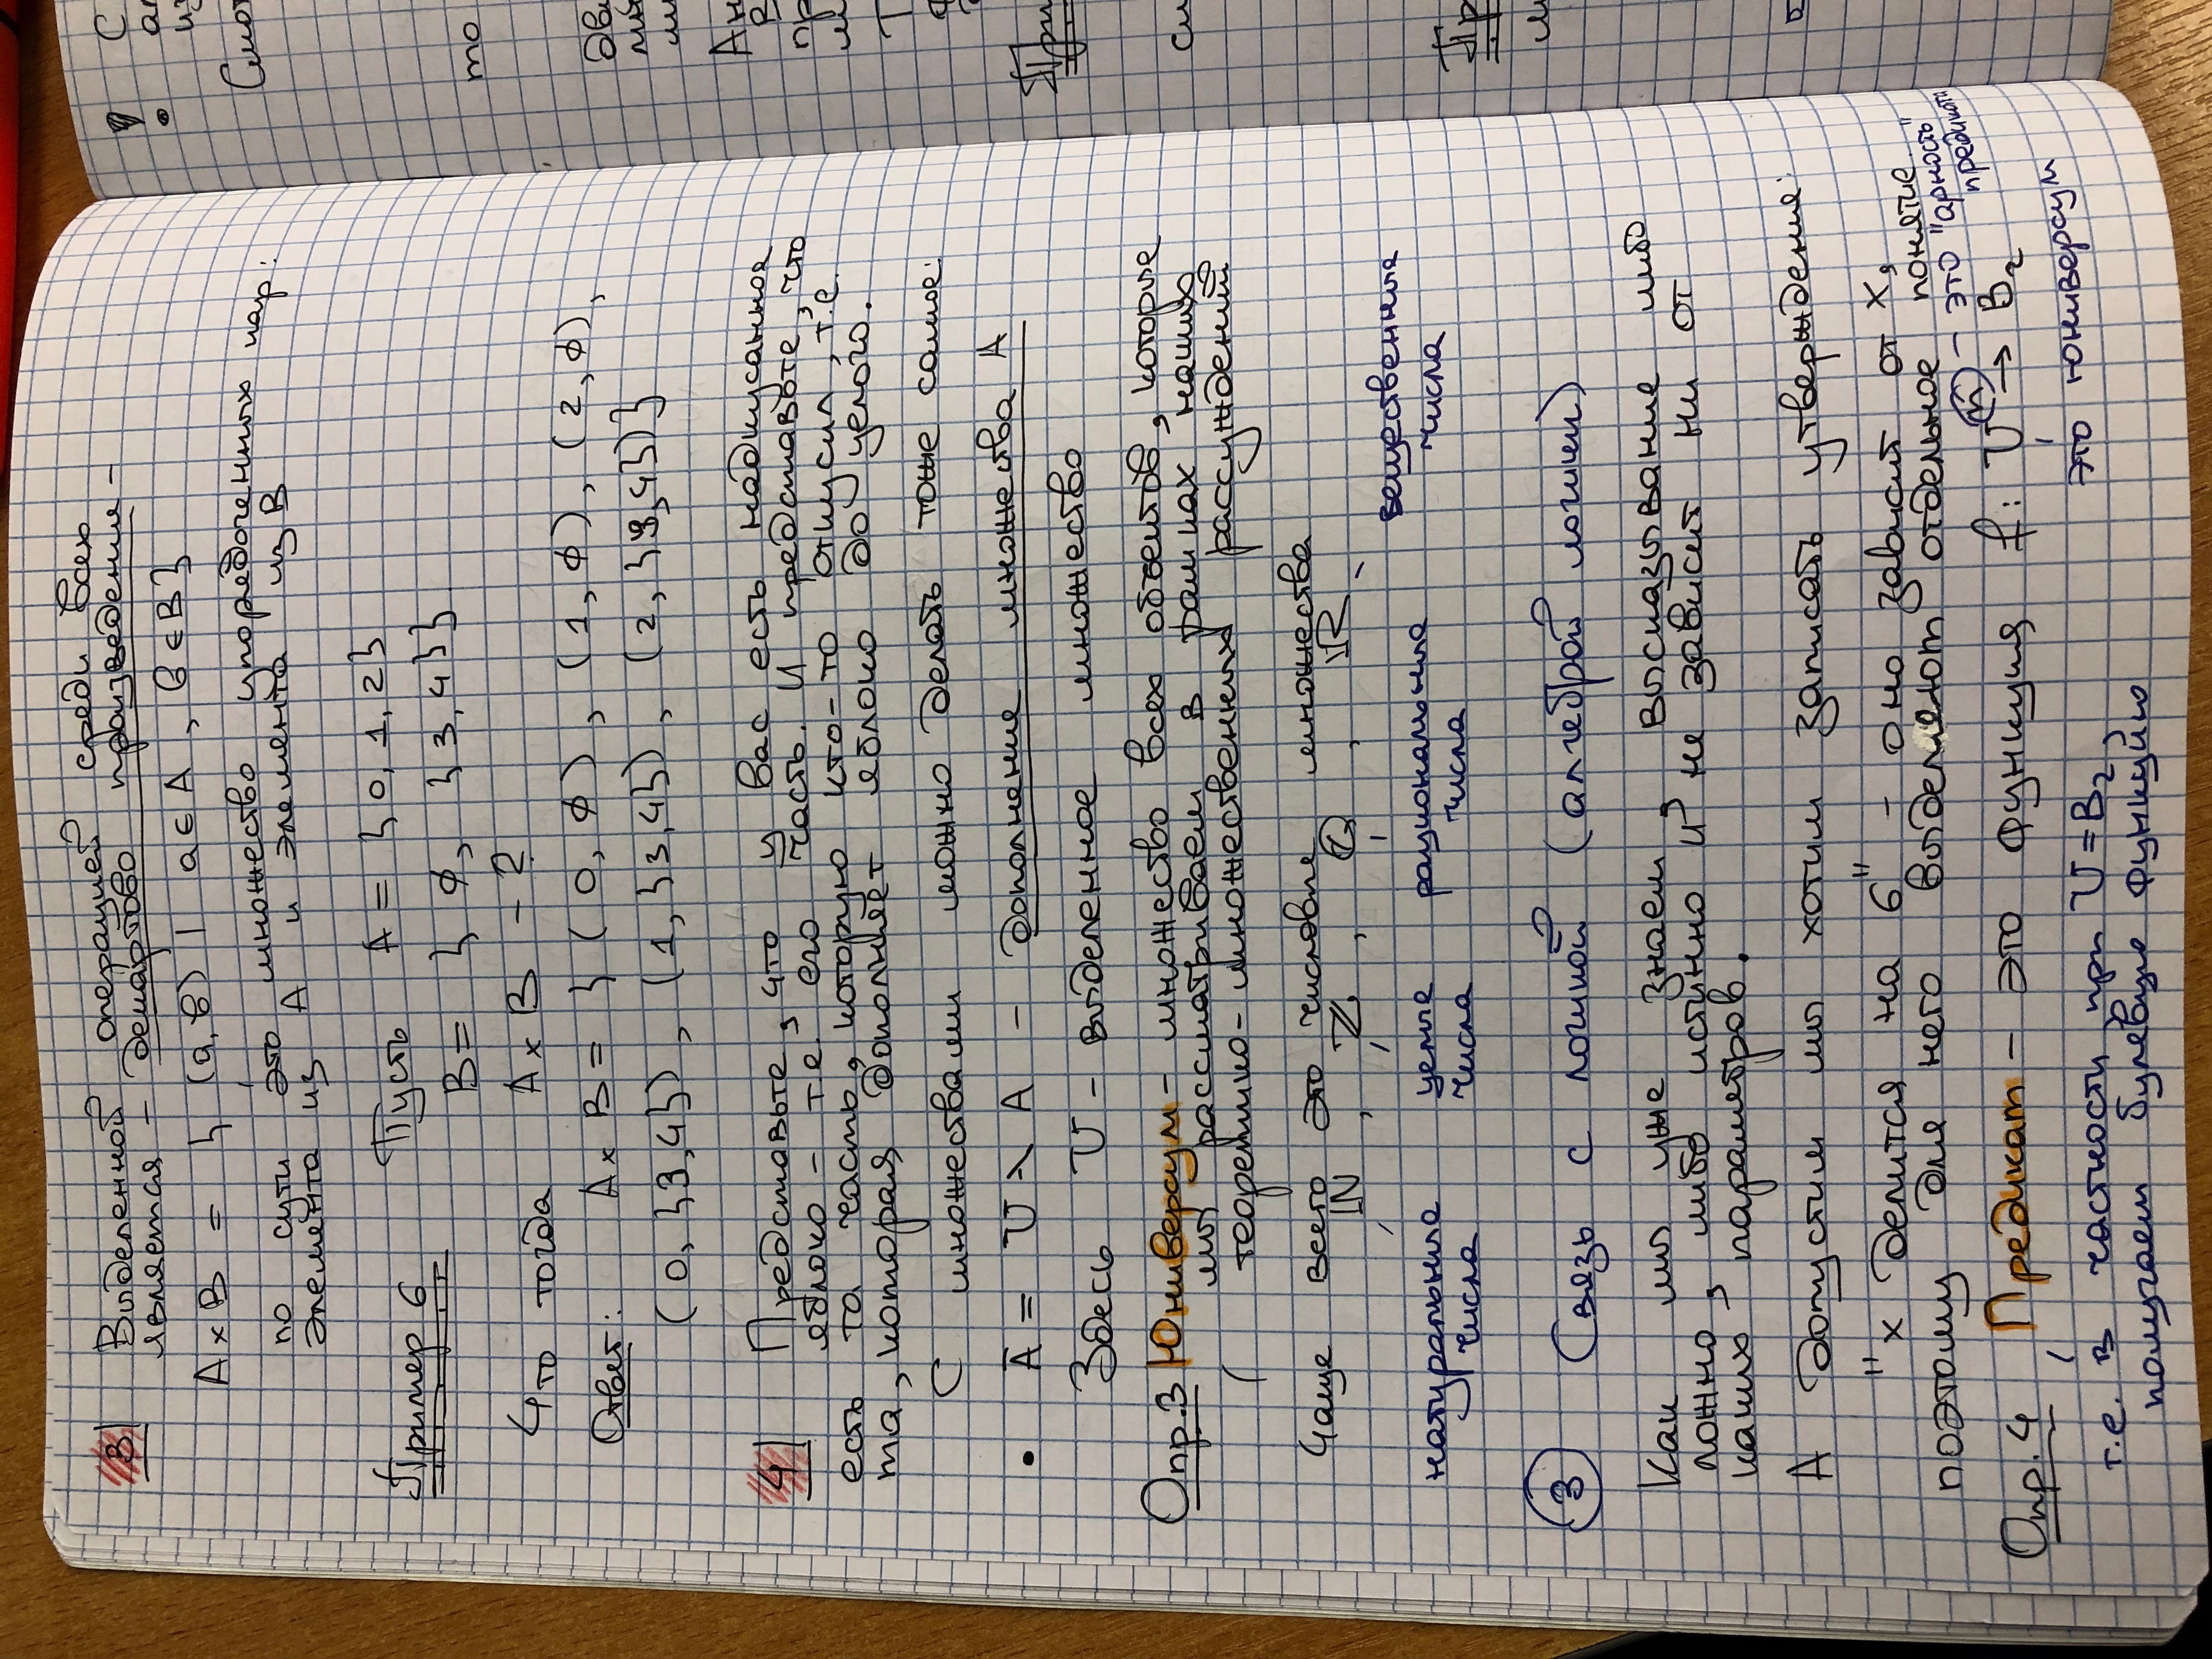 3 Выделенной операцией среди всех
является – декартово произведения –
A × B = { (a, b) | a ∈ A , b ∈ B }
по сути это множество упорядоченных пар:
элемента из A и элемента из B
Пример 6 Пусть A = {0, 1, 2}
B = { ∅, {3, 4}}
Что тогда A × B – ?
Ответ: A × B = { (0, ∅) , (1, ∅) , (2, ∅) ,
(0, {3,4}) , (1, {3,4}) , (2, {3,4})}
4 Представьте, что у вас есть надкусанное
яблоко – т.е. его часть. И представьте, что
есть та часть, которую кто-то откусил, т.е.
та, которая дополняет яблоко до целого.
С множествами можно делать тоже самое:
• Ā = U \ A – дополнение множества A
Здесь U – выделенное множество
Опр.3 Юниверсум – множество всех объектов, которые
мы рассматриваем в рамках наших
теоретико-множественных рассуждений
Чаще всего это числовые множества
ℕ , ℤ , ℚ , ℝ
натуральные числа
целые числа
рациональные числа
вещественные числа
3 Связь с логикой (алгеброй логики)
Как мы уже знаем, высказывание либо
ложно, либо истинно и не зависит ни от
каких параметров.
А допустим мы хотим записать утверждения:
"x делится на 6" – оно зависит от x,
поэтому для него выделяют отдельное понятие.
– это "арность"
предиката
Опр.4 Предикат – это функция f: Uⁿ → B₂
это юниверсум
т.е. в частности при U = B₂,
получаем булевую функцию
!
С
из
то
Пр